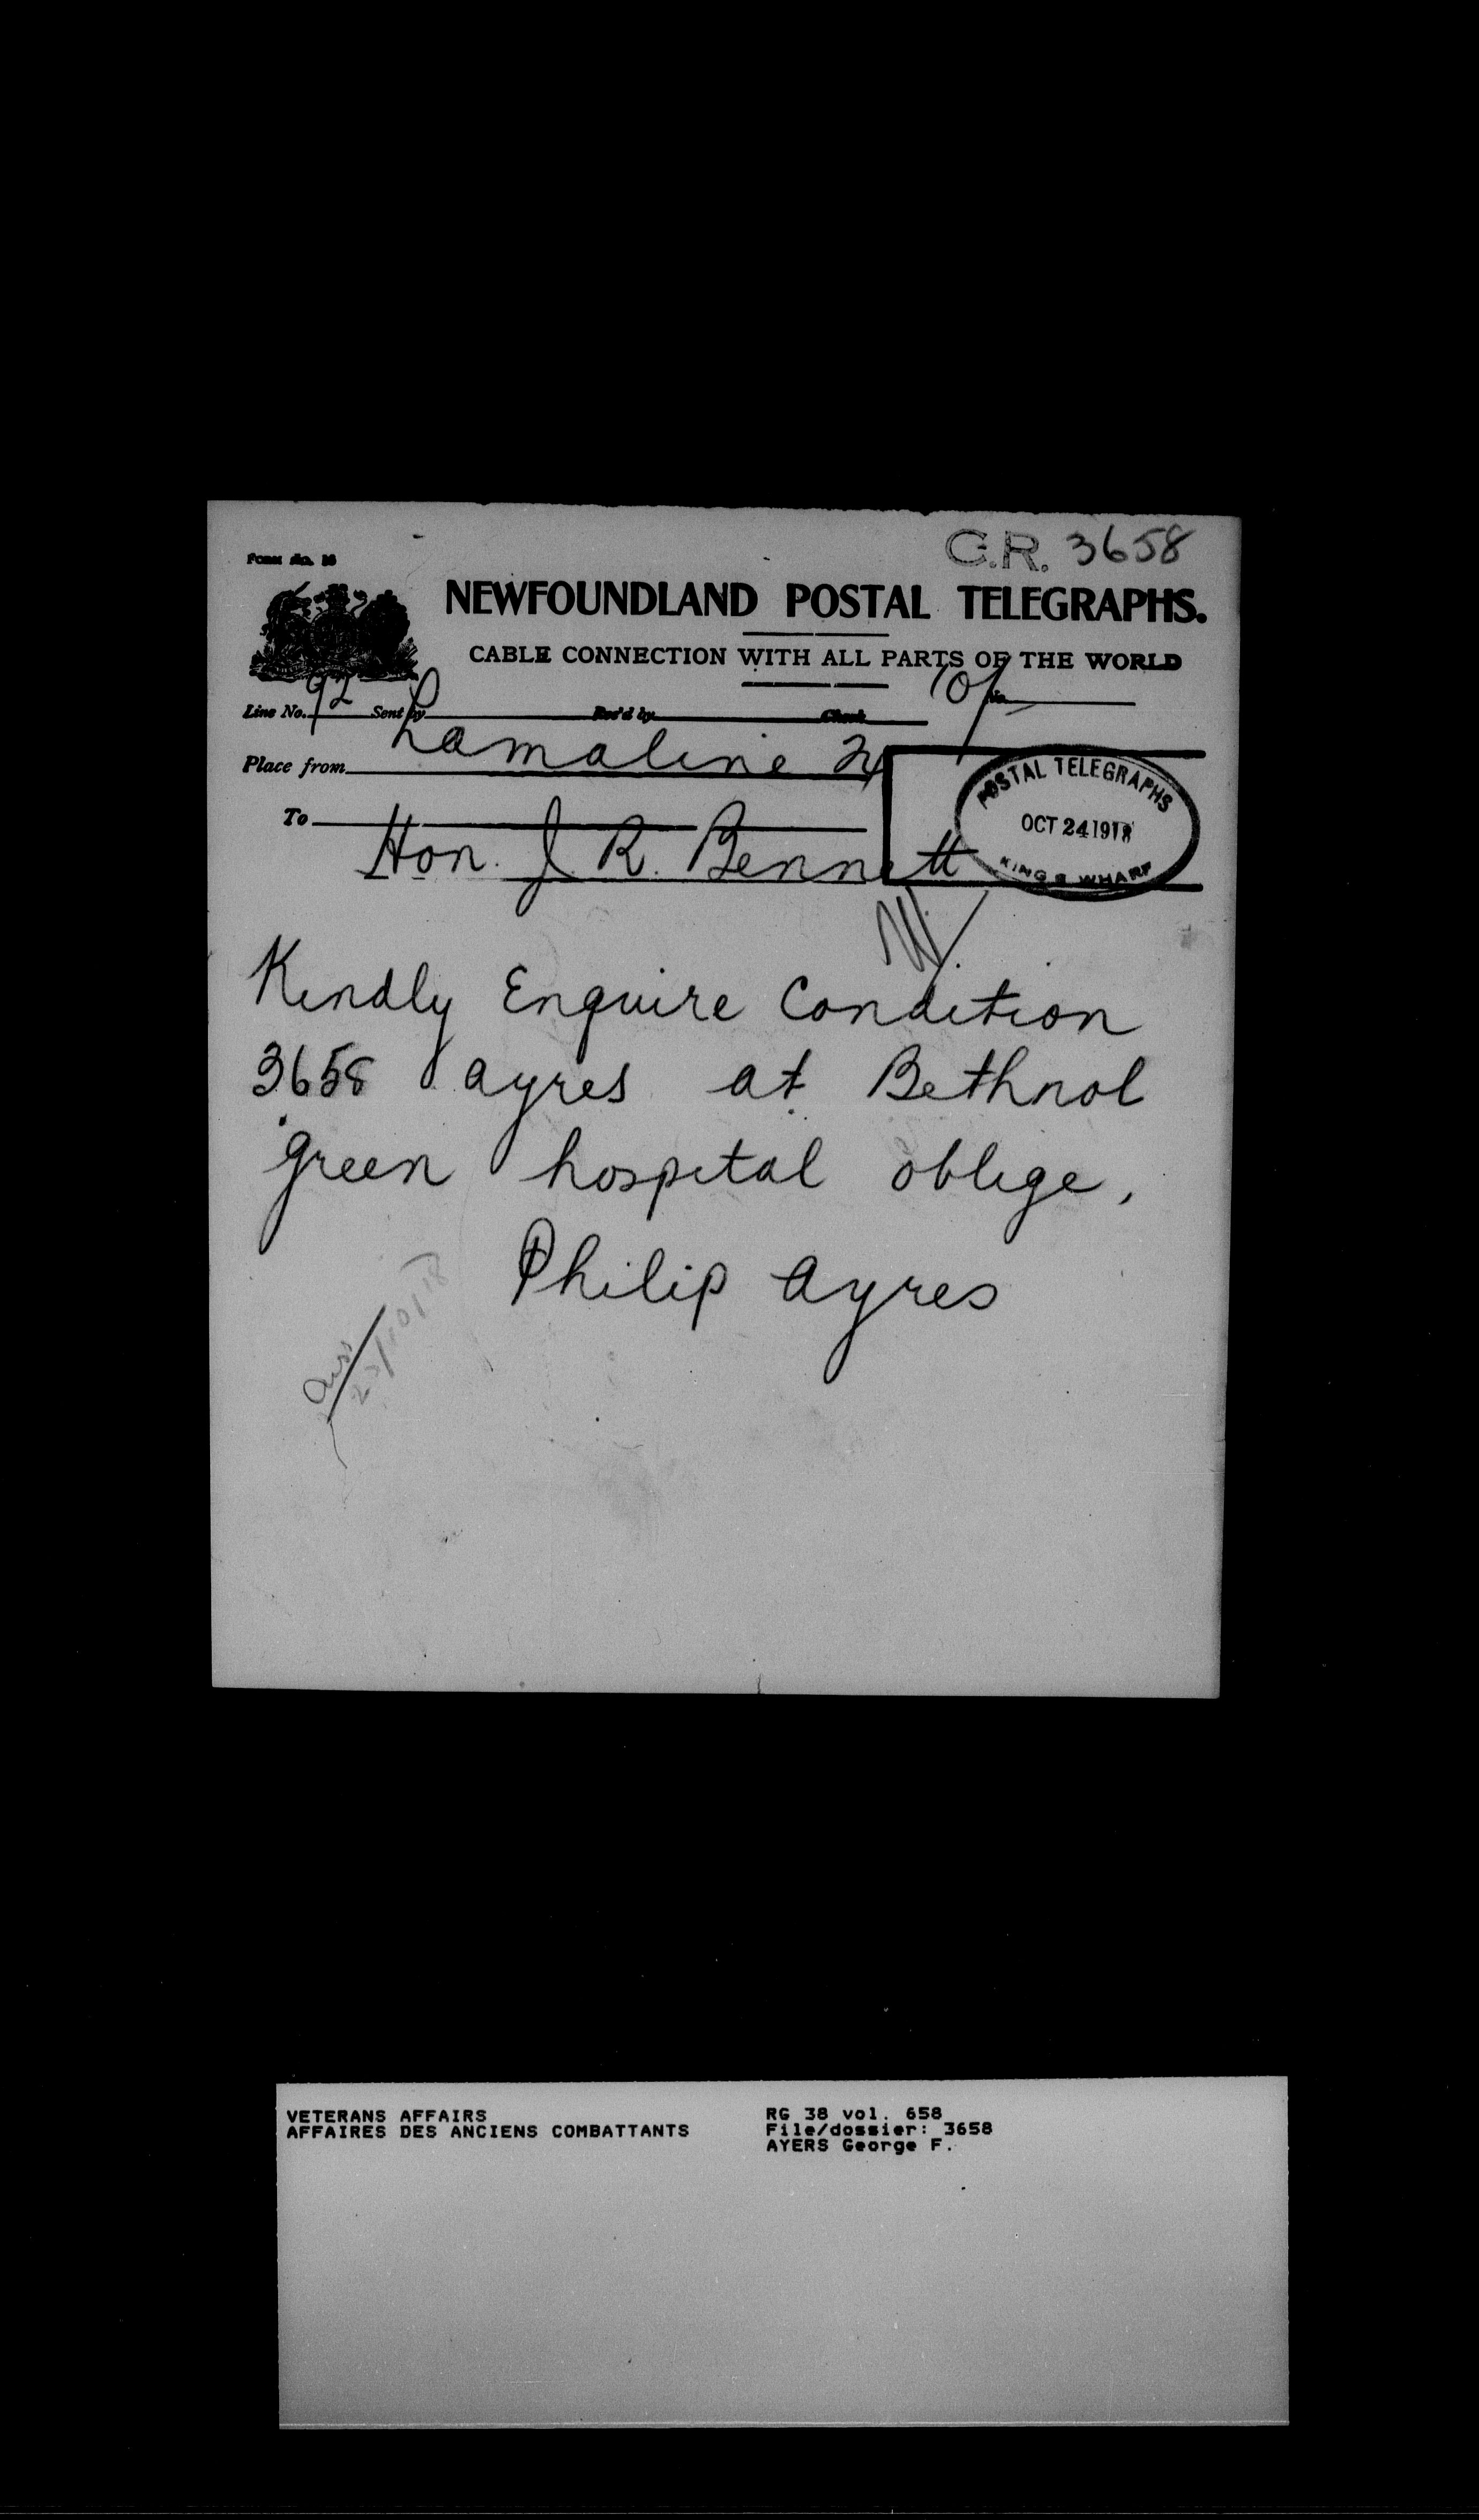 C.R. 3658
NEWFOUNDLAND POSTAL TELEGRAPHS.
CABLE CONNECTION WITH ALL PARTS OF THE WORLD
Line No. 92 Sent by Rec'd by Check
Place from Lamaline 24
To
Hon. J R. Bennett
POSTAL TELEGRAPHS
OCT 24 1918
KING'S WHARF
Kindly Enquire Condition
3658 Ayres at Bethnol
green hospital oblige,
Philip Ayres
VETERANS AFFAIRS
AFFAIRES DES ANCIENS COMBATTANTS
RG 38 vol. 658
File/dossier: 3658
AYERS George F.